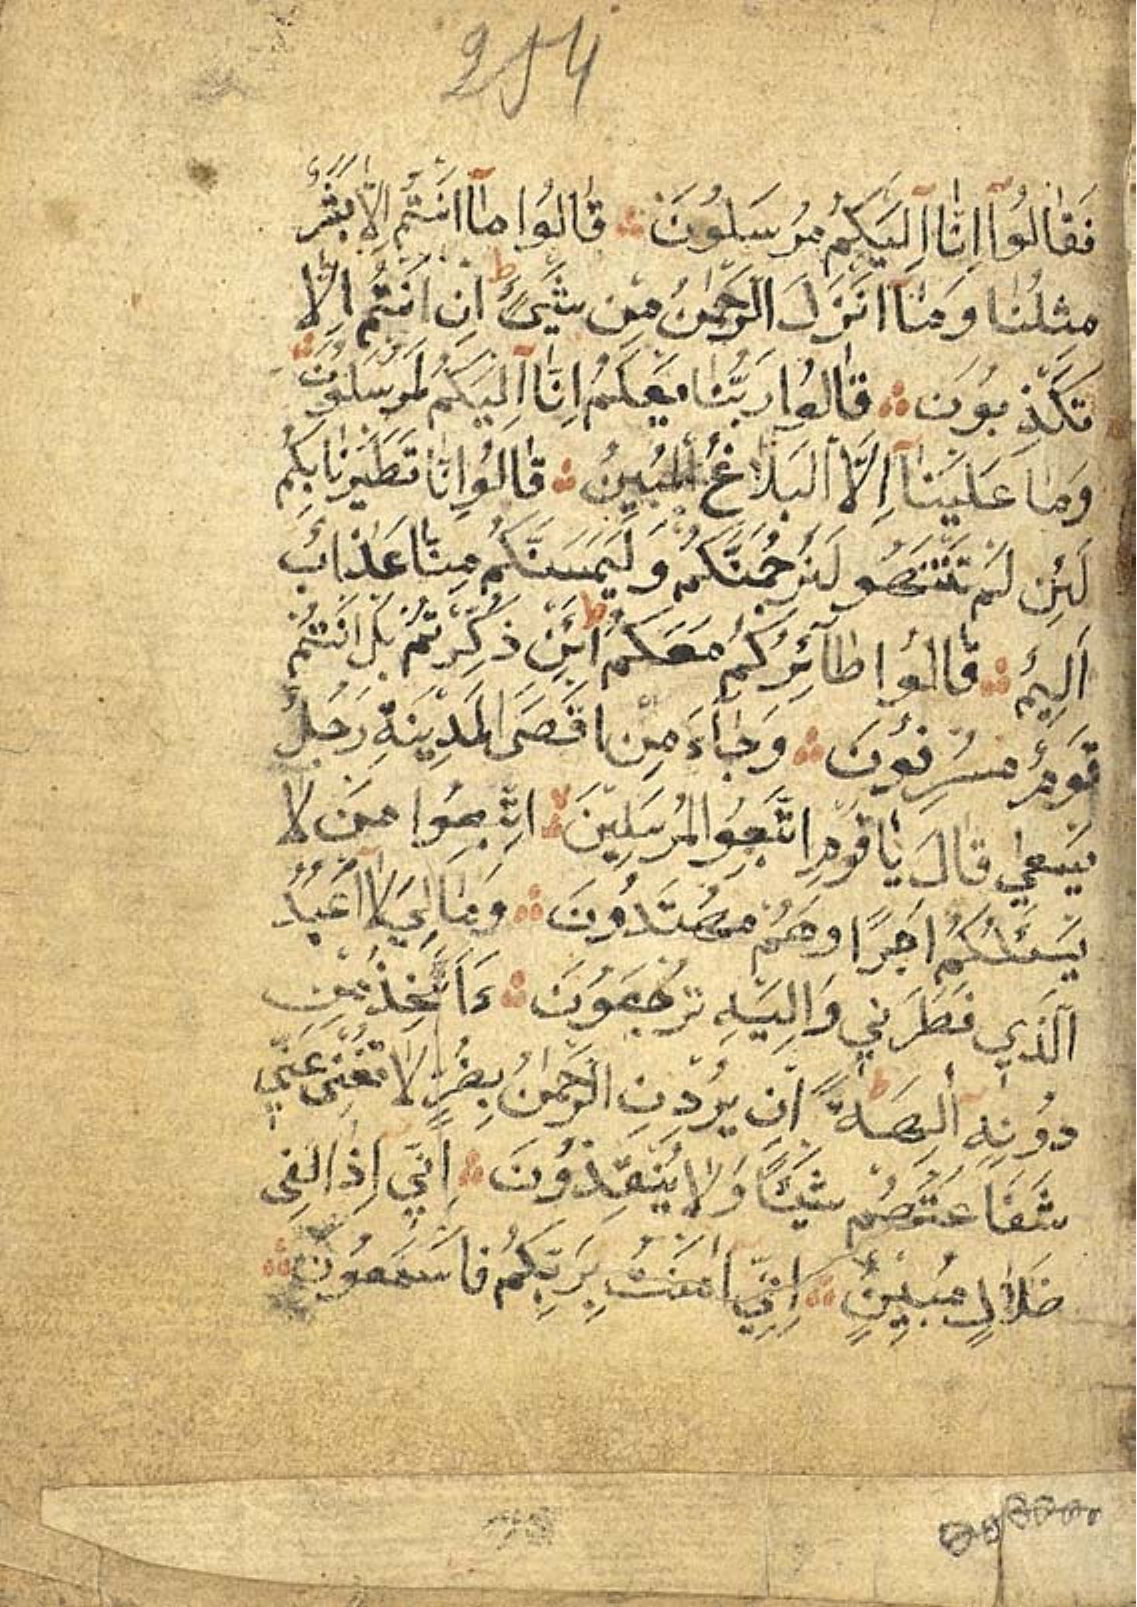 254
فَقَالُوٓا اِنَّآ اِلَيْكُمْ مُرْسَلُونَ ۞ قَالُوا مَآ اَنْتُمْ اِلَّا بَشَرٌ
مِثْلُنَا وَمَآ اَنْزَلَ الرَّحْمٰنُ مِنْ شَيْءٍ ط اِنْ اَنْتُمْ اِلَّا
تَكْذِبُونَ ۞ قَالُوا رَبُّنَا يَعْلَمُ اِنَّآ اِلَيْكُمْ لَمُرْسَلُونَ ۞
وَمَا عَلَيْنَآ اِلَّا الْبَلَاغُ الْمُبِينُ ۞ قَالُوا اِنَّا تَطَيَّرْنَا بِكُمْ
لَئِنْ لَمْ تَنْتَهُو لَنَرْجُمَنَّكُمْ وَلَيَمَسَّنَّكُمْ مِنَّا عَذَابٌ
اَلِيمٌ ۞ قَالُوا طَآئِرُكُمْ مَعَكُمْ ط اَئِنْ ذُكِّرْتُمْ بَلْ اَنْتُمْ
قَوْمٌ مُسْرِفُونَ ۞ وَجَآءَ مِنْ اَقْصَى الْمَدِينَةِ رَجُلٌ
يَسْعٰى قَالَ يَا قَوْمِ اتَّبِعُوا الْمُرْسَلِينَ ۞ لا اتَّبِعُوا مَنْ لَا
يَسْـَٔلُكُمْ اَجْرًا وَهُمْ مُهْتَدُونَ ۞ وَمَا لِيَ لَآ اَعْبُدُ
الَّذِي فَطَرَنِي وَاِلَيْهِ تُرْجَعُونَ ۞ ءَاَتَّخِذُ مِنْ
دُونِهِٓ اٰلِهَةً ط اِنْ يُرِدْنِ الرَّحْمٰنُ بِضُرٍّ لَا تُغْنِ عَنِّي
شَفَاعَتُهُمْ شَيْئًا وَلَا يُنْقِذُونَ ۞ اِنِّٓي اِذًا لَفِي
ضَلَالٍ مُبِينٍ ۞ اِنِّٓي اٰمَنْتُ بِرَبِّكُمْ فَاسْمَعُونَ ۞